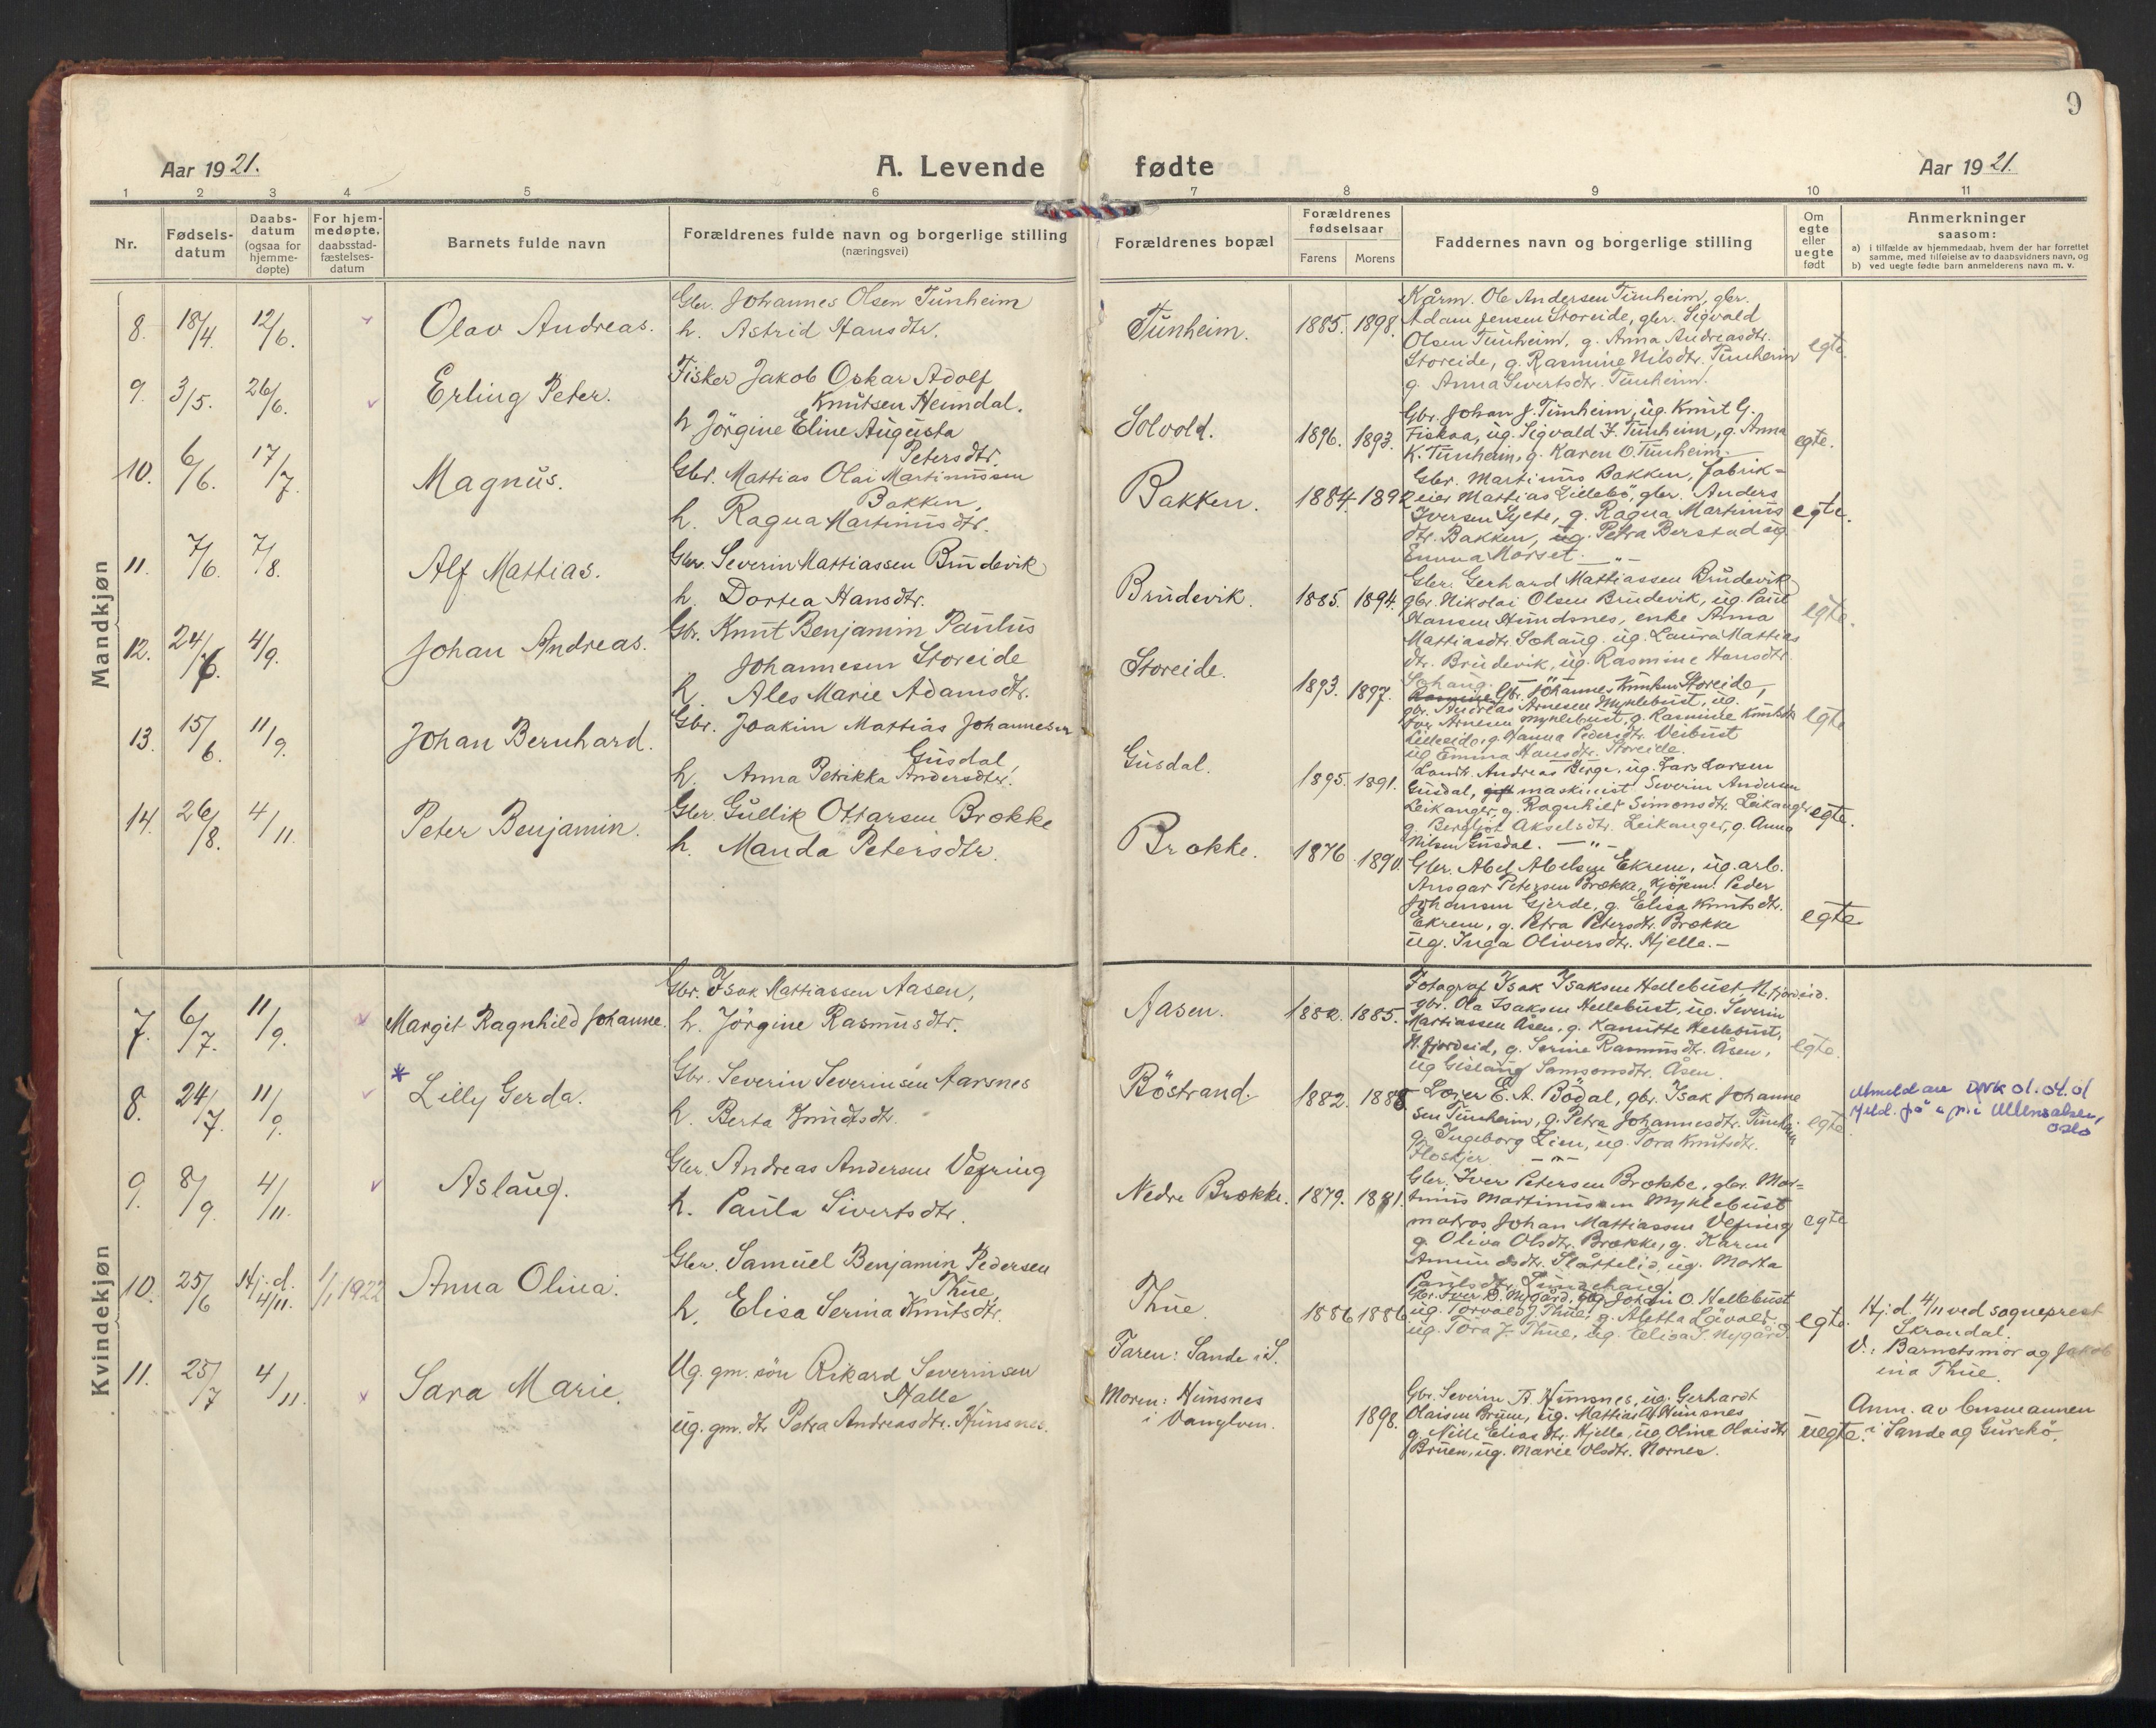 9
Aar 1921.
A. Levende
fødte
Aar 1921.
1 2 3 4 5 6 7 8 9 10 11
Nr.
Fødsels-
datum
Daabs-
datum
(ogsaa for
hjemme-
døpte)
For hjem-
medøpte.
daabsstad-
fæstelses-
datum
Barnets fulde navn
Forældrenes fulde navn og borgerlige stilling
(næringsvei)
Forældrenes bopæl
Forældrenes
fødselsaar
Farens
Morens
Faddernes navn og borgerlige stilling
Om
egte
eller
uegte
født
Anmerkninger
saasom:
a) i tilfælde av hjemmedaab, hvem der har forrettet
samme, med tilføielse av to daabsvidners navn, og
b) ved uegte fødte barn anmelderens navn m. v.
Mandkjøn
8. 18/4. 12/6. Olav Andreas.
Gbr. Johannes Olsen Tunheim
h. Astrid Hansdtr.
Tunheim. 1885. 1898.
Kårm. Ole Andersen Tunheim, gbr.
Adam Jensen Storeide, gbr. Sigvald
Olsen Tunheim, g. Anna Andreasdtr.
Storeide, g. Rasmine Nilsdtr. Tunheim
g. Anna Sivertsdtr. Tunheim.
egte.
9. 3/5. 26/6. Erling Peter.
Fisker Jakob Oskar Adolf
Knutsen Heimdal.
h Jörgine Eline Augusta
Petersdtr.
Solvold. 1896. 1893.
Gbr. Johan J. Tunheim, ug. Knut G.
Fiskaa, ug. Sigvald J. Tunheim, g. Anna
K. Tunheim, g. Karen O. Tunheim.
egte.
10. 6/6. 17/7. Magnus.
Gbr. Mattias Olai Martinussen
Bakken,
h. Ragna Martinusdtr.
Bakken. 1884. 1892
Gbr. Martinus Bakken, fabrik-
eier Mattias Lillebö, gbr. Anders
Iversen Sylte, g. Ragna Martinus
dtr. Bakken, ug. Petra Berstad ug.
Emma Morset. —"—
egte.
11. 7/6. 7/8. Alf Mattias.
Gbr. Severin Mattiassen Brudevik
h. Dortea Hansdtr.
Brudevik. 1885. 1894.
Gbr. Gerhard Mattiassen Brudevik
gbr. Nikolai Olsen Brudevik, ug. Paul
Hansen Hundsnes, enke Anna
Mattiasdtr. Sohaug. ug. Laura Mattias
dtr. Brudevik, ug. Rasmine Hansdtr.
Sohaug. —
egte.
12. 24/6. 4/9. Johan Andreas.
Gbr. Knut Benjamin Paulus
Johannesen Storeide
h. Ales Marie Adamsdtr.
Storeide. 1893. 1897.
Gbr. Johannes Knutsen Storeide,
gbr. Andreas Arnesen Myklebust, ug.
Arnesen Myklebust, g. Rasmine
g. Hanna Pedersdtr. Veibust
ug Emma Hansdtr. Storeide.
egte
13. 15/6. 11/9. Johan Bernhard.
Gbr. Joakim Mattias Johannesen
Gusdal,
h. Anna Petrikka Andersdtr.
Gusdal. 1895. 1891.
Landh. Andreas Berge, ug. Lars Larsen
Gusdal, maskinist Severin Andersen
Leikanger, g. Ragnhild Simonsdtr. Leikanger
g. Bergljot Akselsdtr. Leikanger, g. Anna
Nilsen Gusdal. —"—
egte.
14. 26/8. 4/11. Peter Benjamin.
Gbr. Gullik Ottarsen Brække
h. Manda Petersdtr.
Brække. 1876. 1890.
Gbr. Abel Abelsen Ekrem, ug. arb.
Ansgar Petersen Brække, kjöpm. Peder
Johansen Gjerde, g. Elisa Knutsdtr.
Ekrem, g. Petra Petersdtr. Brække
ug. Inga Oliversdtr. Hjelle.—
egte.
Kvindekjøn
7. 6/7. 11/9. Margit Ragnhild Johanne.
Gbr. Isak Mattiassen Aasen,
h. Jörgine Rasmusdtr.
Aasen. 1882. 1885.
Fotograf Isak Isaksen Hellebust N.fjordeid.
gbr. Ola Isaksen Hellebust, ug. Severin
Martiassen Åsen, g. Kanutte Hellebust,
N.fjordeid, g. Serine Rasmusdtr. Åsen,
ug Gislaug Samsonsdtr. Åsen.
egte.
8. 24/7. 11/9. * Lilly Gerda.
Gbr. Severin Severinsen Aarsnes
h. Berta Knudtsdtr.
Böstrand. 1882. 1885
Lærer E. A. Bödal, gbr. Isak Johanne
sen Tunheim, g. Petra Johannesdtr. Tunheim
g. Ingeborg Lien, ug. Tora Knutsdtr.
Floskjer. —"—
egte.
Utmeld av DNK 01.04.01
Ullensalen,
Oslo
9. 8/9. 4/11. Aslaug.
Gbr. Andreas Andersen Vefring
h. Paula Sivertsdtr.
Nedre Brække. 1879. 1881.
Gbr. Iver Petersen Brække, gbr. Mar-
tinus Martinussen Myklebust
matros Johan Mattiassen Vefring
g. Oliva Olsdtr. Brække, g. Karen
Amundsdtr. Slåttelid, ug. Marta
Paulsdtr. Lundehaug.
egte
10. 25/6 Hj.d. 4/11. 1/1 1922 Anna Olina.
Gbr. Samuel Benjamin Pedersen
Thue,
h. Elisa Serina Knutsdtr.
Thue 1886 1886
Gbr. Iver D. Nygård, Johan O. Hellebust
ug. Torvald J. Thue, g. Aletta Løvold,
ug. Tora J. Thue, ug. Elisa I. Nygård.
egte.
Hj.d. 4/11 ved sogneprest
Skrondal.
V.: Barnets mor og Jakob
ina Thue.
11. 25/7 4/11. Sara Marie.
Ug. gm. sön Rikard Severinsen
Halle
ug. gm. dtr Petra Andreasdtr. Hunsnes.
Faren: Sande i S.
Moren: Hunsnes
i Vanylven.
1898.
Gbr. Severin A. Hunsnes, ug. Gerhardt
Olaisen Bruen, ug. Mattias A. Hunsnes
g. Nille Eliasdtr. Hjelle, ug. Oline Olaisdtr
Bruen, ug. Marie Olsdtr. Nornes.
uegte.
Anm. av lensmannen
i Sande og Gurskö.